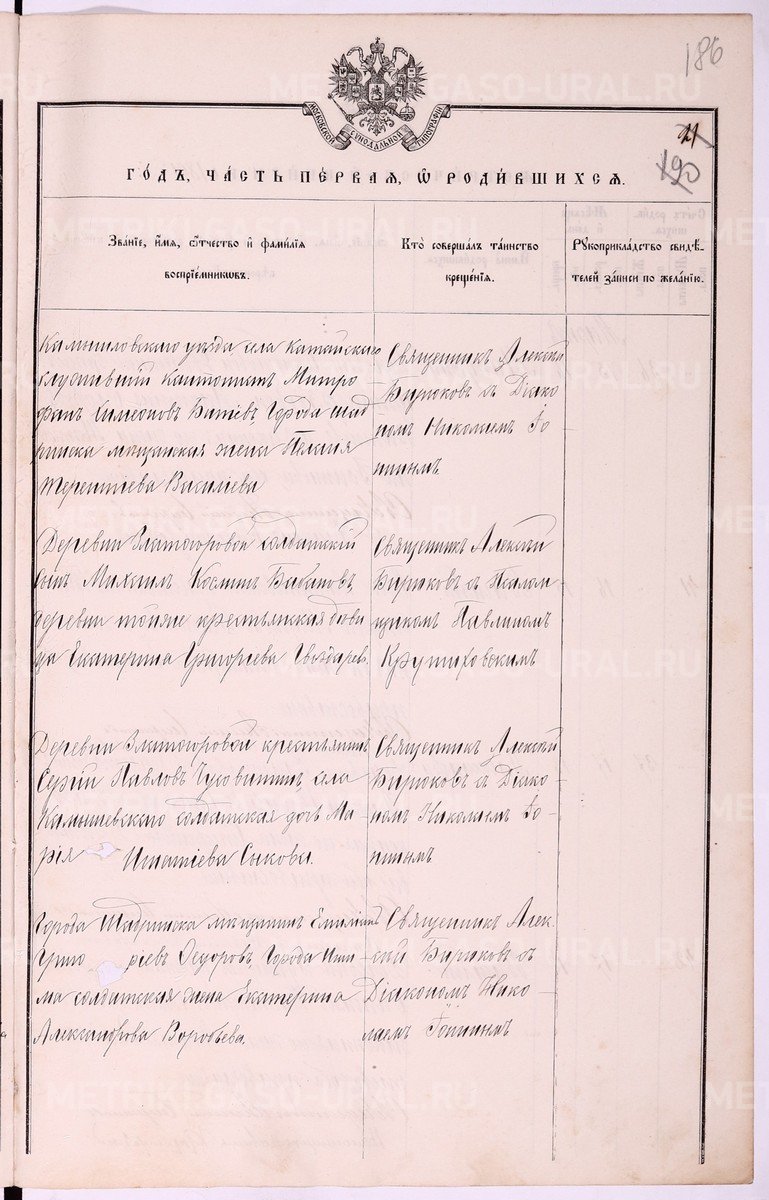 186
МОСКОВСКОЙ СѴНОДАЛЬНОЙ ТИПОГРАФІИ
21
190
ГО́ДЪ, ЧА́СТЬ ПЕ́РВАЯ, Ѽ РОДИ́ВШИХСЯ.
Зва́нїе, и҆́мя, ѻ҆́тчество и҆ фами́лїя
воспрїе́мникѡвъ.
Кто̀ соверша́лъ та́инство
креще́нїя.
Рꙋкоприкла́дство свидѣ́-
телей за́писи по жела́нїю.
Камышловскаго уѣзда села Катайскаго
служившій Кантонистъ Митро
фанъ Симеоновъ Города Шад
ринска мѣщанская жена Пелагія
Терентіева Василіева
Священникъ Алексій
Бирюковъ съ Діако
номъ Николаемъ
Деревни Златогоровой солдатскій
сынъ Михаилъ Косминъ Бабановъ,
деревни тойже крестьянская дѣви
ца Екатерина Григоріева
Священникъ Алексій
Бирюковъ съ Псалом
щикомъ Павлиномъ
Крутиховскимъ
Деревни Златогоровой крестьянинъ
Сергій Павловъ Чусовитинъ, села
Камышевскаго солдатская дочь Ма
рія Игнатіева Сыкова.
Священникъ Алексій
Бирюковъ съ Діако
номъ Николаемъ
Города Шадринска мѣщанинъ
Григоріевъ Ѳедоровъ, Города Иши
ма солдатская жена Екатерина
Александрова Воробьева.
Священникъ Алек
сій Бирюковъ съ
Діакономъ Нико
лаемъ
METRIKI.GASO-URAL.RU